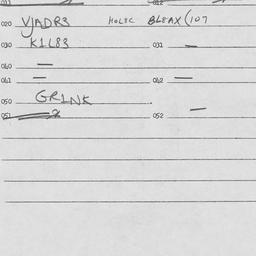 011 012
020 VJADR3 HOLSC BL8AX(107
030 K1L83 031 —
040 —
041 — 042 —
050 GR1NK
051 052 —